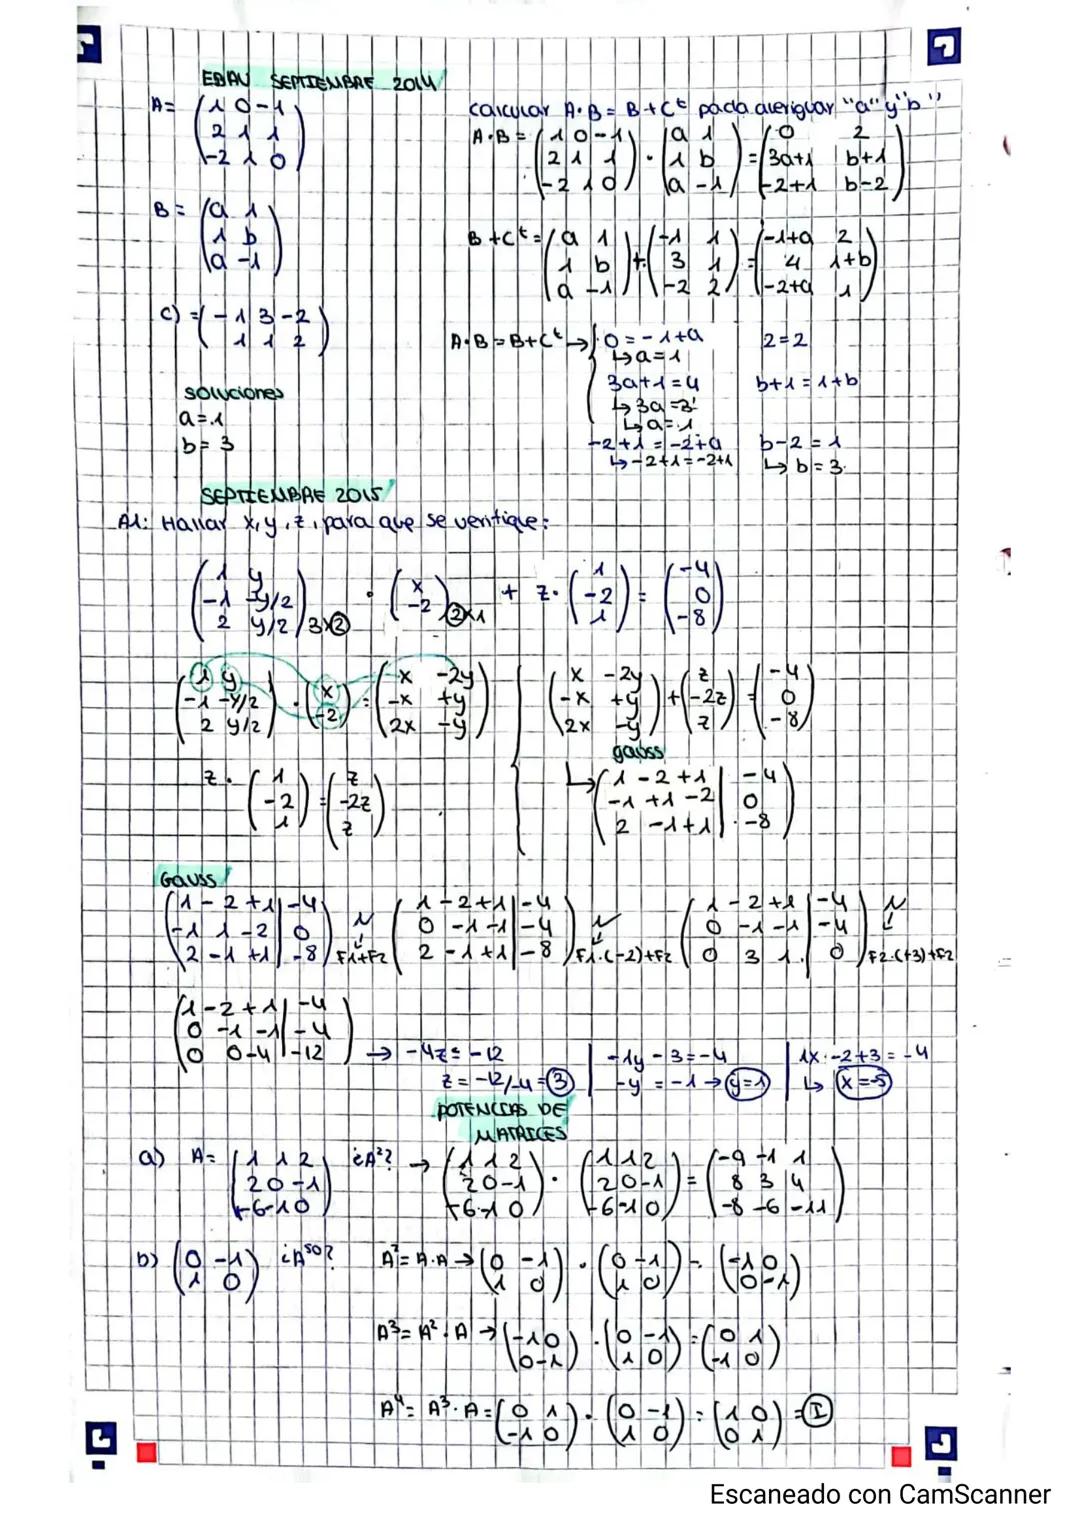 EBAU SEPTIEMBRE 2014
A= (1 0 -1
2 1 1
-2 1 0)
B= (a 1
1 b
a -1)
C) = (-1 3 -2
1 1 2)
soluciones
a=1
b= 3
calcular A·B= B+C^t pada averiguar "a" y "b"
A·B= (1 0 -1
2 1 1
-2 1 0) · (a 1
1 b
a -1) = (0 2
3a+1 b+1
-2+1 b-2)
B+C^t= (a 1
1 b
a -1) + (-1 1
3 1
-2 2) = (-1+a 2
4 1+b
-2+a 1)
A·B=B+C^t → 0=-1+a 2=2
↳ a=1
3a+1=4 b+1=1+b
↳ 3a=3
↳ a=1
-2+1=-2+a b-2=1
↳ -2+1=-2+1 ↳ b=3.
SEPTIEMBRE 2015
A1: Hallar x, y, z, para que se verifique:
(1 y
-1 -y/2
2 y/2) 3x2 · (x
-2) 2x1 + z· (1
-2
1) = (-4
0
-8)
(1 y
-1 -y/2
2 y/2) · (x
-2) = (x -2y
-x +y
2x -y)
z· (1
-2
1) = (z
-2z
z)
(x -2y
-x +y
2x -y) + (z
-2z
z) = (-4
0
-8)
gauss
↳ (1 -2 +1 | -4
-1 +1 -2 | 0
2 -1 +1 | -8)
GAUSS
(1 -2 +1 | -4
-1 1 -2 | 0
2 -1 +1 | -8) ~ F1+F2
(1 -2 +1 | -4
0 -1 -1 | -4
2 -1 +1 | -8) ~ F1·(-2)+F2
(1 -2 +1 | -4
0 -1 -1 | -4
0 3 1 | 0) ~ F2·(+3)+F2
(1 -2 +1 | -4
0 -1 -1 | -4
0 0 -4 | -12) → -4z= -12
z= -12/-4 = 3
-1y -3=-4
-y = -1 → y=1
1x·-2+3 = -4
↳ x=-5
POTENCIAS DE
MATRICES
a) A= (1 1 2
2 0 -1
-6 -1 0) ¿A²? → (1 1 2
2 0 -1
-6 -1 0) · (1 1 2
2 0 -1
-6 -1 0) = (-9 -1 1
8 3 4
-8 -6 -11)
b) (0 -1
1 0) ¿A^50? A²= A·A → (0 -1
1 0) · (0 -1
1 0) = (-1 0
0 -1)
A³= A²·A → (-1 0
0 -1) · (0 -1
1 0) = (0 1
-1 0)
A⁴= A³·A = (0 1
-1 0) · (0 -1
1 0) = (1 0
0 1) = I
Escaneado con CamScanner